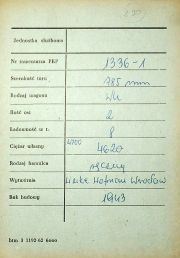 Jednostka służbowa
Nr inwentarza PKP 1336-1
Szerokość toru 785 mm
Rodzaj wagonu
Ilość osi 2
Ładowność w t. 8
Ciężar własny 4700 4620
Rodzaj hamulca ręczny
Wytwórnia Linke Hofmann Wrocław
Rok budowy 1943